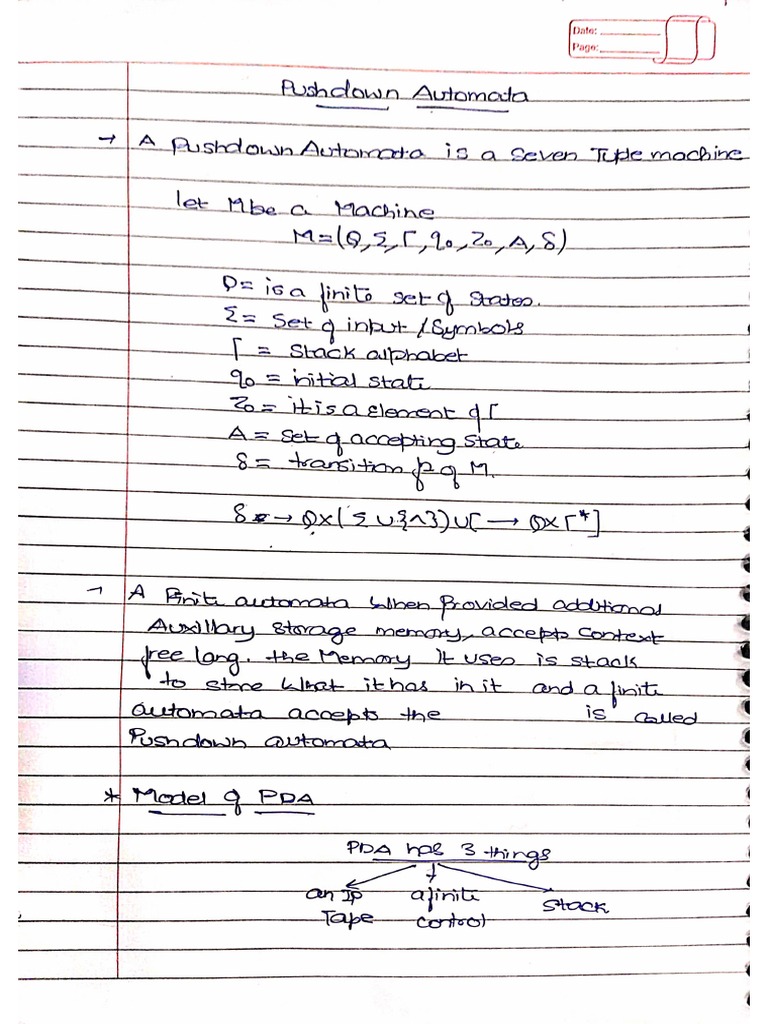 Date:
Page:
Pushdown Automata
→ A Pushdown Automata is a Seven Tuple machine
let M be a Machine
M = (Q, Σ, Γ, q0, Z0, A, δ)
Q = is a finite set of States.
Σ = Set of input / Symbols
Γ = Stack alphabet
q0 = initial state
Z0 = it is a element of Γ
A = Set of accepting State
δ = transition fn of M.
δ → Q × (Σ ∪ {^}) ∪ Γ → Q × Γ*]
→ A Finite automata When Provided additional
Auxillary Storage memory, accepts Context
free lang. the Memory It uses is stack
to store What it has in it and a finite
automata accepts the is called
Pushdown automata
* Model of PDA
PDA has 3 things
an IP a finite Stack
Tape control